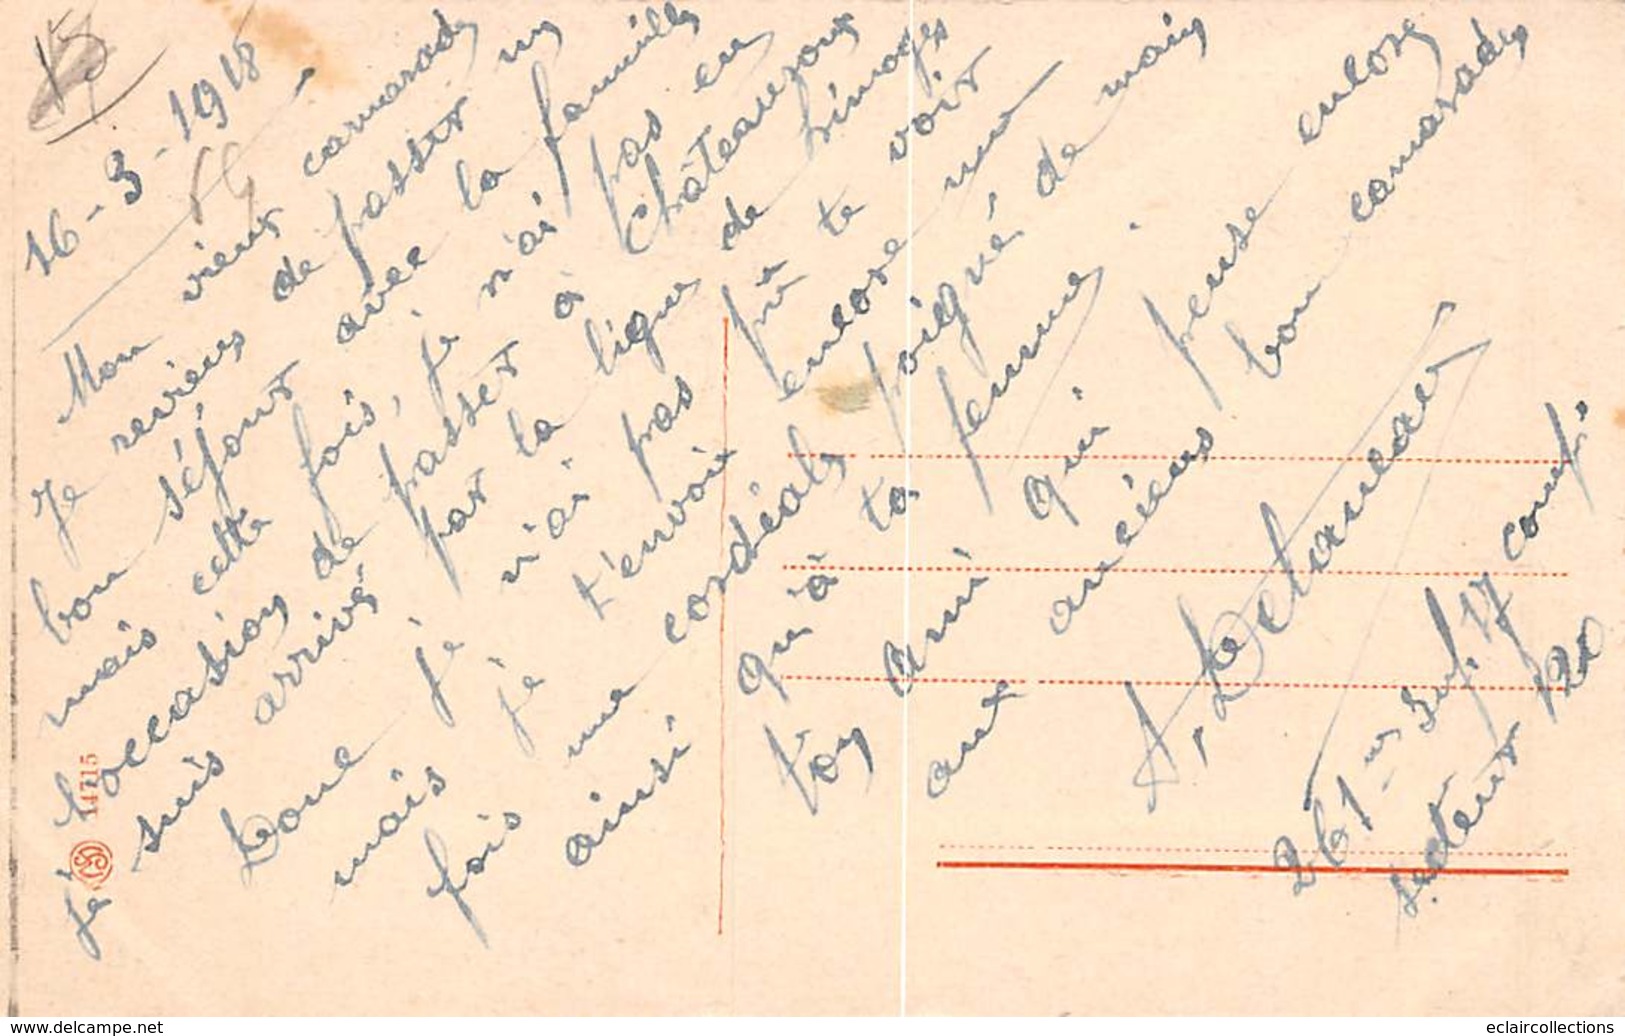 16-3-1918
Mon vieux camarade
Je reviens de passer un
bon séjour avec la famille
mais cette fois, je n'ai pas eu
l'occasion de passer à Chateauroux
je suis arrivé par la ligne de Limoges
Donc je n'ai pas pu te voir
mais je t'envoie encore une
fois ma cordiale poignée de main
ainsi qu'à ta femme.
Ton ami qui pense encore
aux anciens bon camarades
261me Inf. 17 comp.
secteur 120
14715
www.delcampe.net
eclaircollections